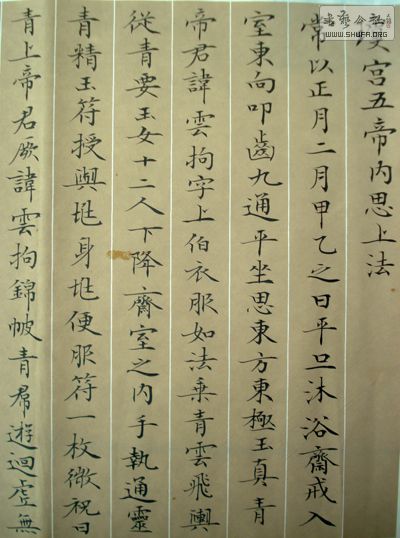 宮五帝內思上法
常以正月二月甲乙之日平旦沐浴齋戒入
室東向叩齒九通平坐思東方東極玉真青
帝君諱雲拘字上伯衣服如法乘青雲飛輿
從青要玉女十二人下降齋室之內手執通靈
青精玉符授與垗身垗便服符一枚微祝曰
青上帝君厥諱雲拘錦帔青帬遊迴虛無
WWW.SHUFA.ORG